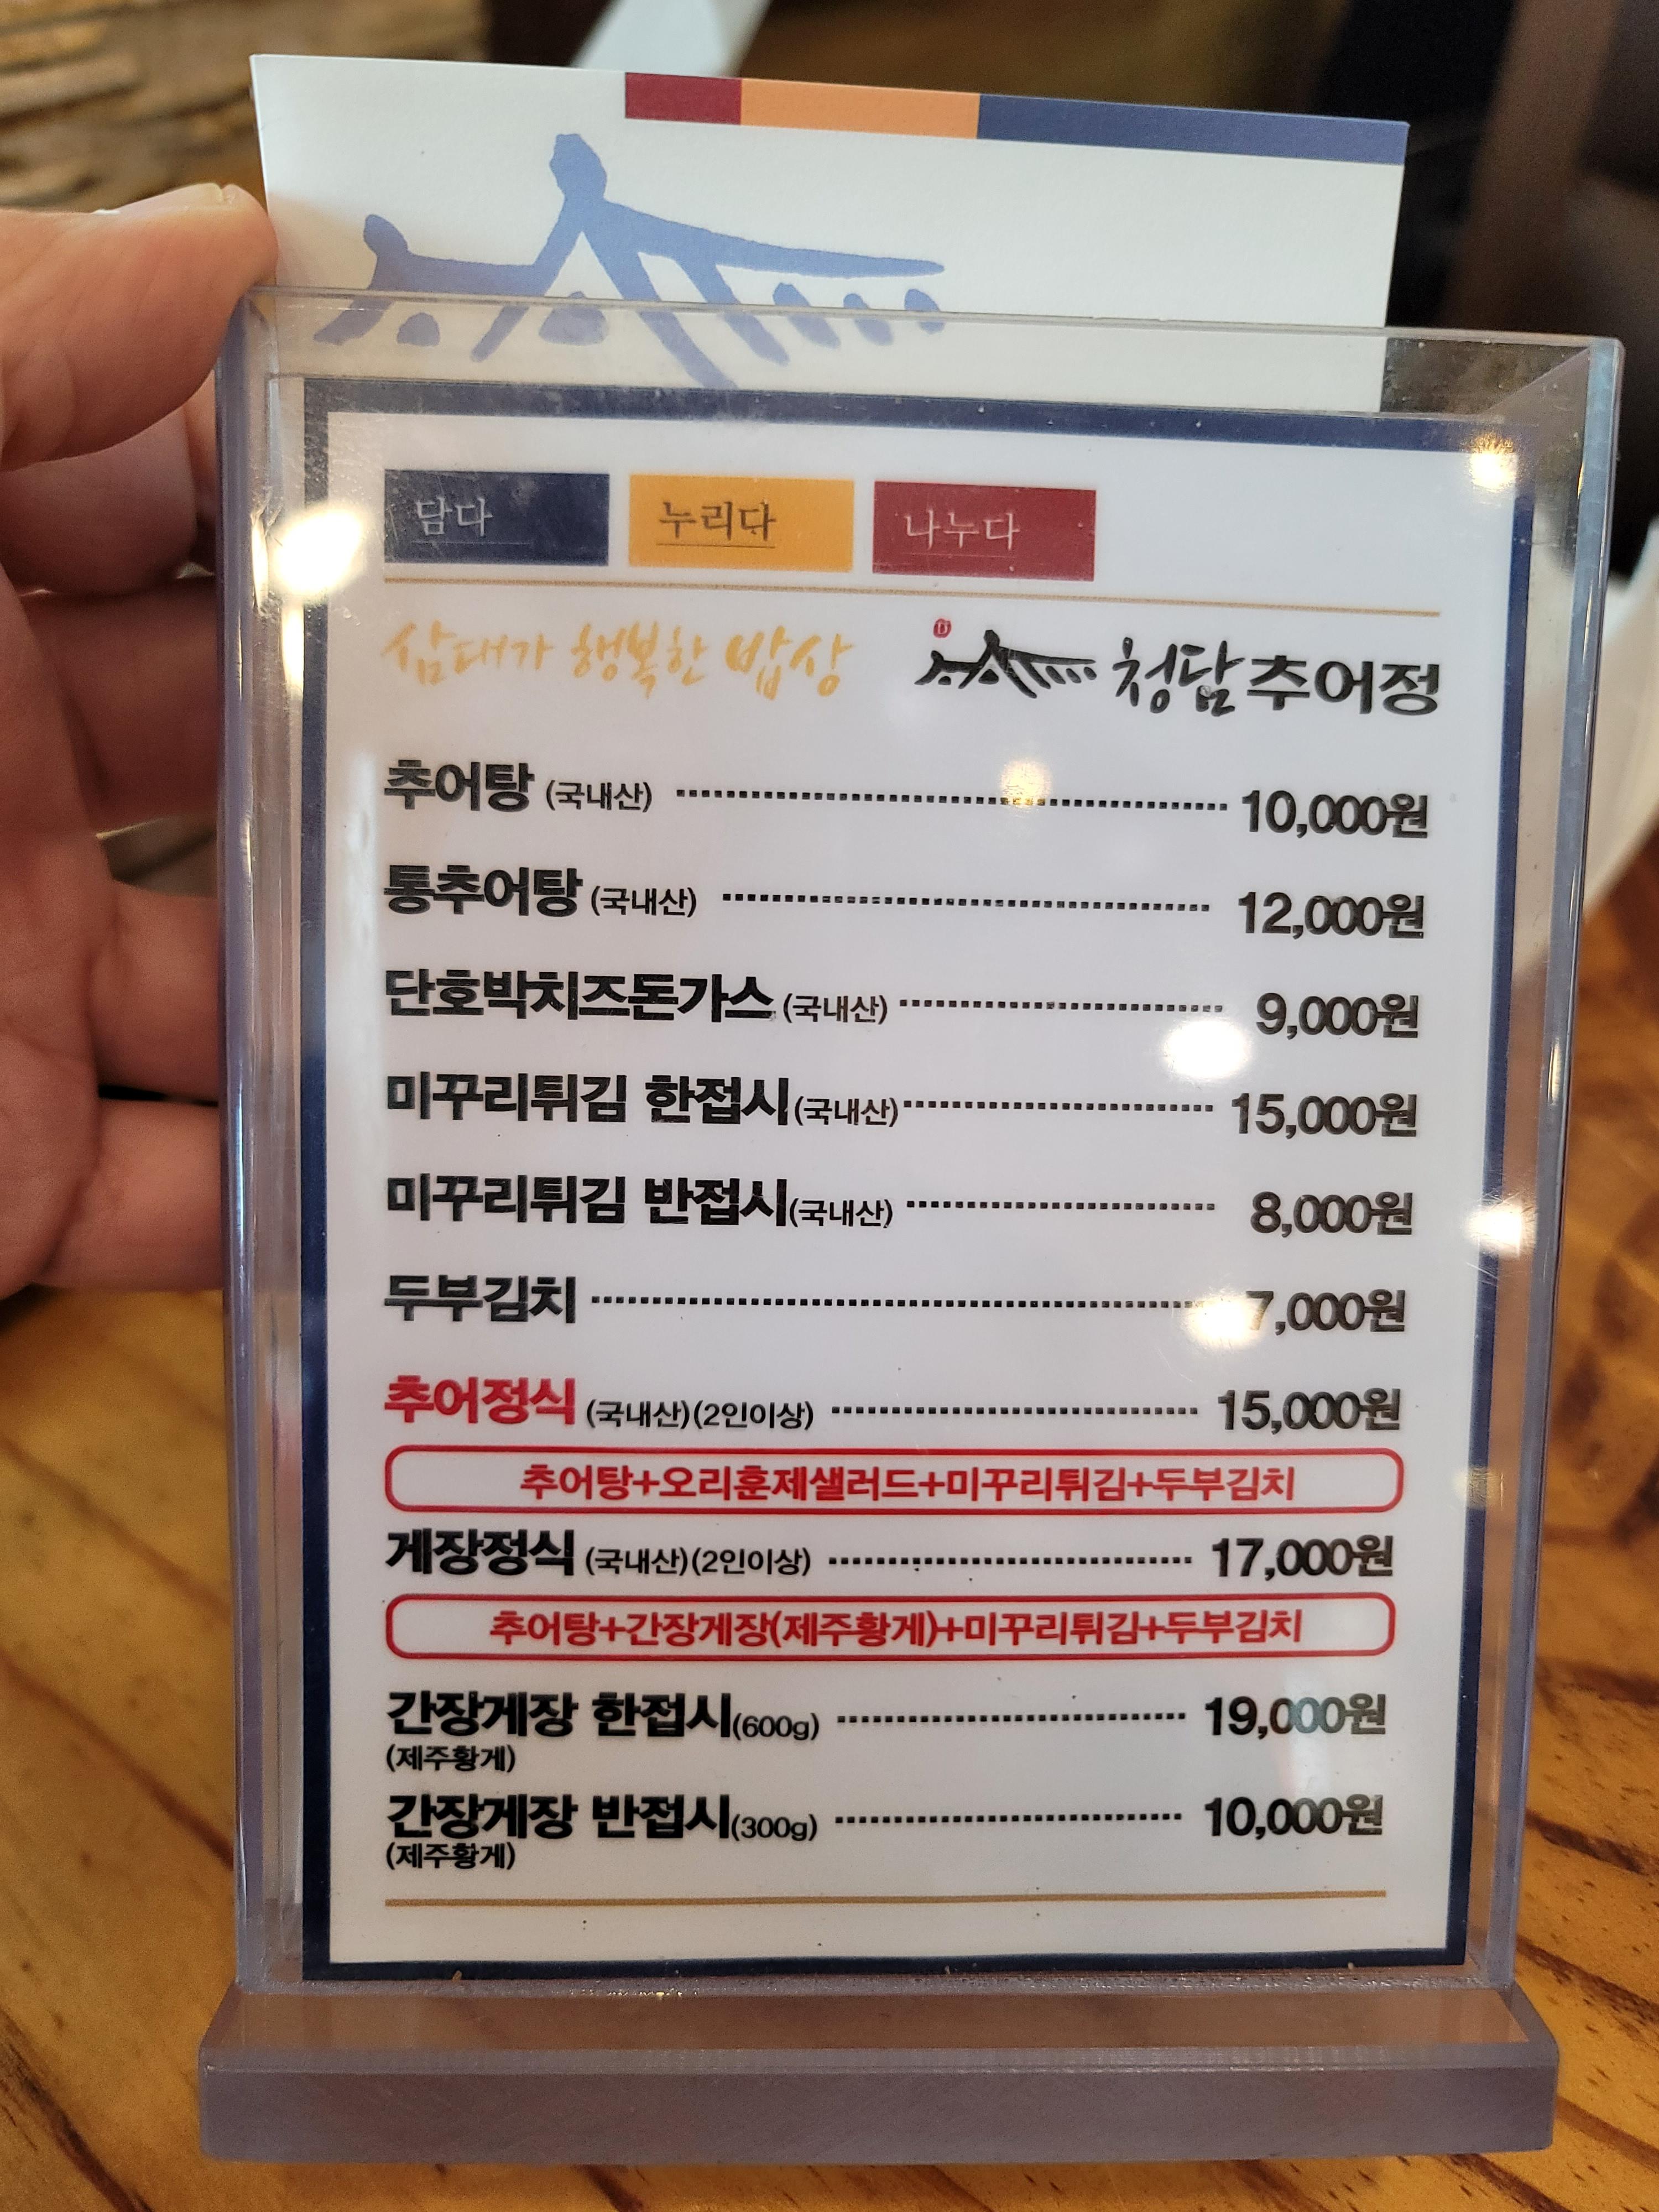 담다 누리다 나누다
삼대가 행복한 밥상 청담추어정
추어탕 (국내산) 10,000원
통추어탕 (국내산) 12,000원
단호박치즈돈가스 (국내산) 9,000원
미꾸리튀김 한접시(국내산) 15,000원
미꾸리튀김 반접시(국내산) 8,000원
두부김치 7,000원
추어정식 (국내산)(2인이상) 15,000원
추어탕+오리훈제샐러드+미꾸리튀김+두부김치
게장정식 (국내산)(2인이상) 17,000원
추어탕+간장게장(제주황게)+미꾸리튀김+두부김치
간장게장 한접시(600g) 19,000원
(제주황게)
간장게장 반접시(300g) 10,000원
(제주황게)